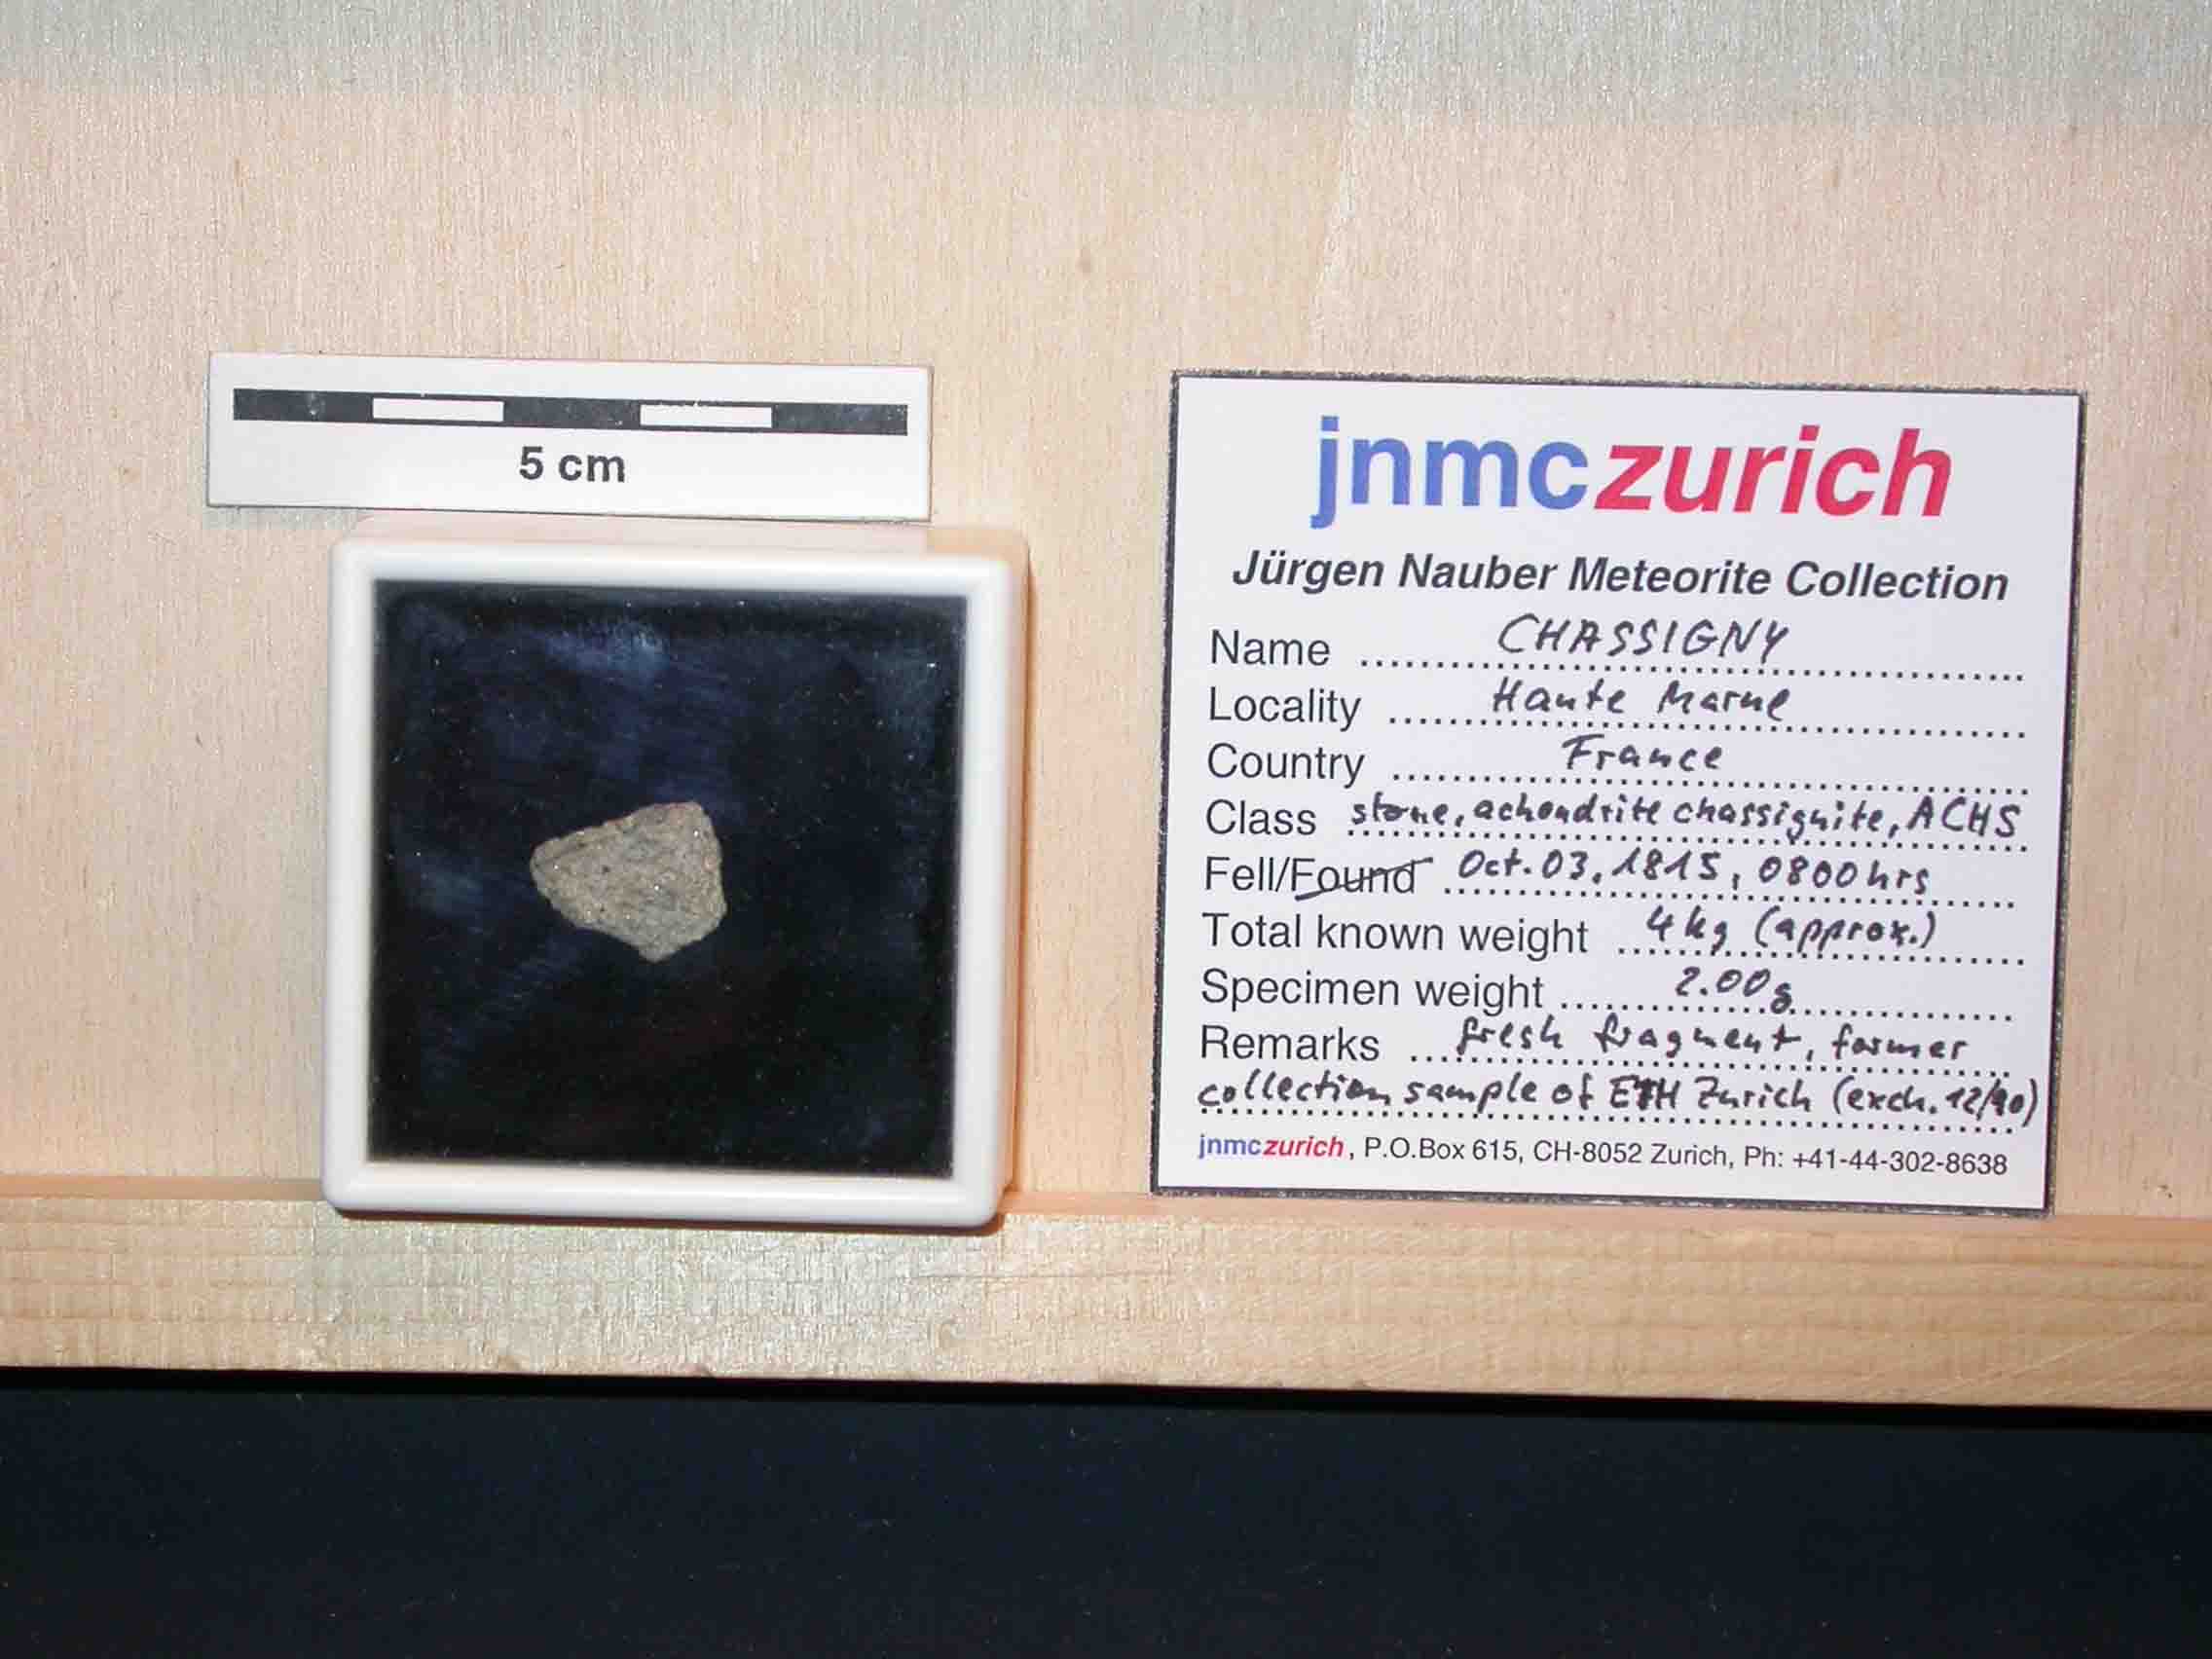 5 cm
jnmczurich
Jürgen Nauber Meteorite Collection
Name CHASSIGNY
Locality Haute Marne
Country France
Class stone, achondrite chassignite, ACHS
Fell/Found Oct. 03, 1815, 0800 hrs
Total known weight 4 kg (approx.)
Specimen weight 2.00g
Remarks fresh fragment, former
collection sample of ETH Zurich (exch. 12/90)
jnmczurich, P.O.Box 615, CH-8052 Zurich, Ph: +41-44-302-8638